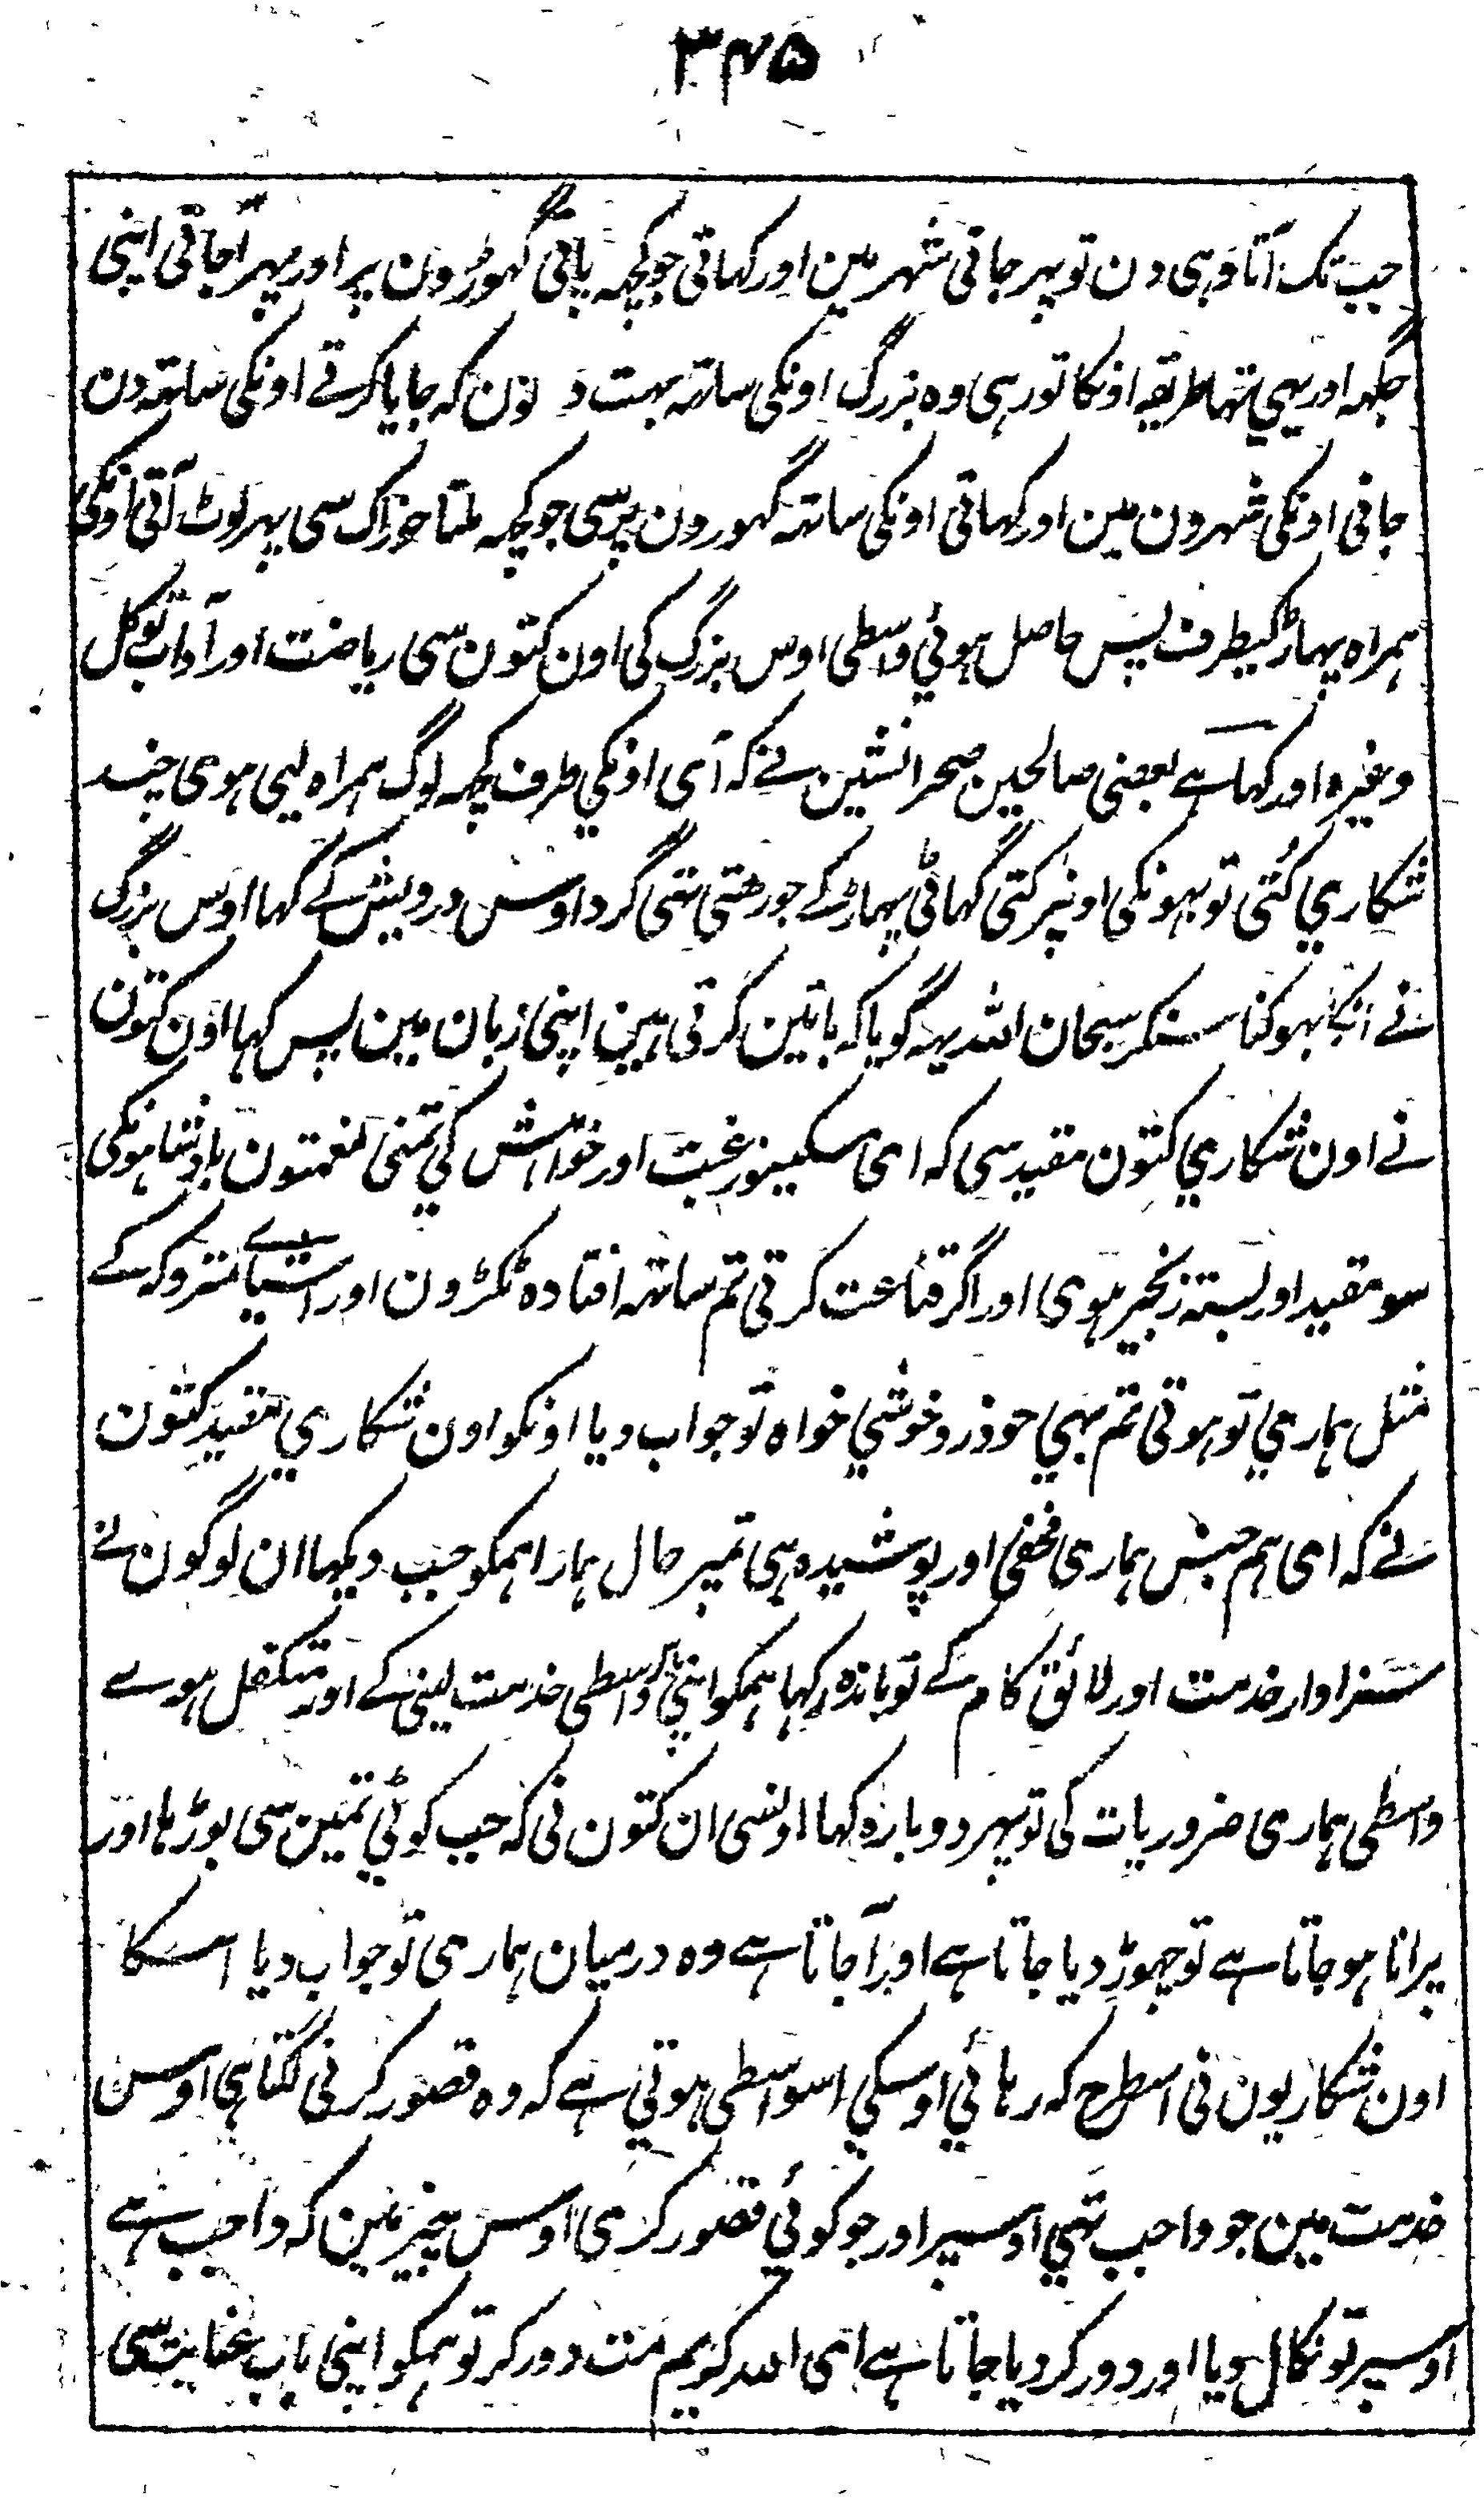 ۳۴۵
جب تک آتا وہی دن تو پہر جاتی شہر مین اور کہاتی جوکچہ پاتی گہوڑون پر اور پہر آجاتی اپنی
جگہہ اور یہی تہا طریقہ اونکا تو رہی وہ بزرگ اونکی ساتہ بہت دنون کہ جایا کرتے اونکی ساتہ دن
جاتی اونکی شہرون مین اور کہاتی اونکی ساتہ گہورون پرسی جوکچہ ملتا خوراک سی پہر لوٹ آتی اونکی
ہمراہ پہاڑ کیطرف پس حاصل ہوئی واسطی اوس بزرگ کی اون کتون سی ریاضت اور آداب توکل
وغیرہ اور کہا ہے بعضی صالحین صحرانشین نے کہ آی اونکی طرف کچہہ لوگ ہمراہ لیی ہوی چند
شکاري کتی تو بہونکی اونپر کتی گہاٹی پہاڑ کے جو رہتی تہی گرد اوس درویش کے کہا اوس بزرگ
نے انکا بہوکنا سنکر سبحان اللہ یہہ گویا کہ باتین کرتی ہین اپنی زبان مین پس کہا اون کتون
نے اون شکاري کتون مقید سی کہ ای مسکینو رغبت اور خواہش کی تمنی نعمتون بادشاہونکی
سو مقید اور بستہ زنجیر ہوی اور اگر قناعت کرتی تم ساتہ افتادہ ٹکڑون اور اشیاے متروکہ کے
مثل ہماری تو ہوتی تم بہی خوذ و خوشي خواہ تو جواب دیا اونکو اون شکاري مقید کتون
نے کہ ای ہم جنس ہماری مخفی اور پوشیدہ ہی تمپر حال ہمارا ہمکو جب دیکہا ان لوگون نے
سزاوار خدمت اور لائق کام کے تو باندہ رکہا ہمکو اپنی پاس واسطی خدمت لینی کے اور متکفل ہوے
واسطی ہماری ضروریات کی تو پہر دوبارہ کہا اونسی ان کتون نی کہ جب کوئی تمین سی بوڑہا اور
پرانا ہوجاتا ہے تو چہوڑ دیا جاتا ہے اور آجاتا ہے وہ درمیان ہماری تو جواب دیا اسکا
اون شکاریون نی اسطرح کہ رہائي اوسکي اسواسطی ہوتی ہے کہ وہ قصور کرنی لگتا ہی اوس
خدمت مین جو واجب تہي اوسپر اور جوکوئي قصور کری اوس چیز مین کہ واجب ہے
اوسپر تو نکال دیا اور دور کردیا جاتا ہے ای اللہ کریم مت دور کر تو ہمکو اپنی باب عنایت سی